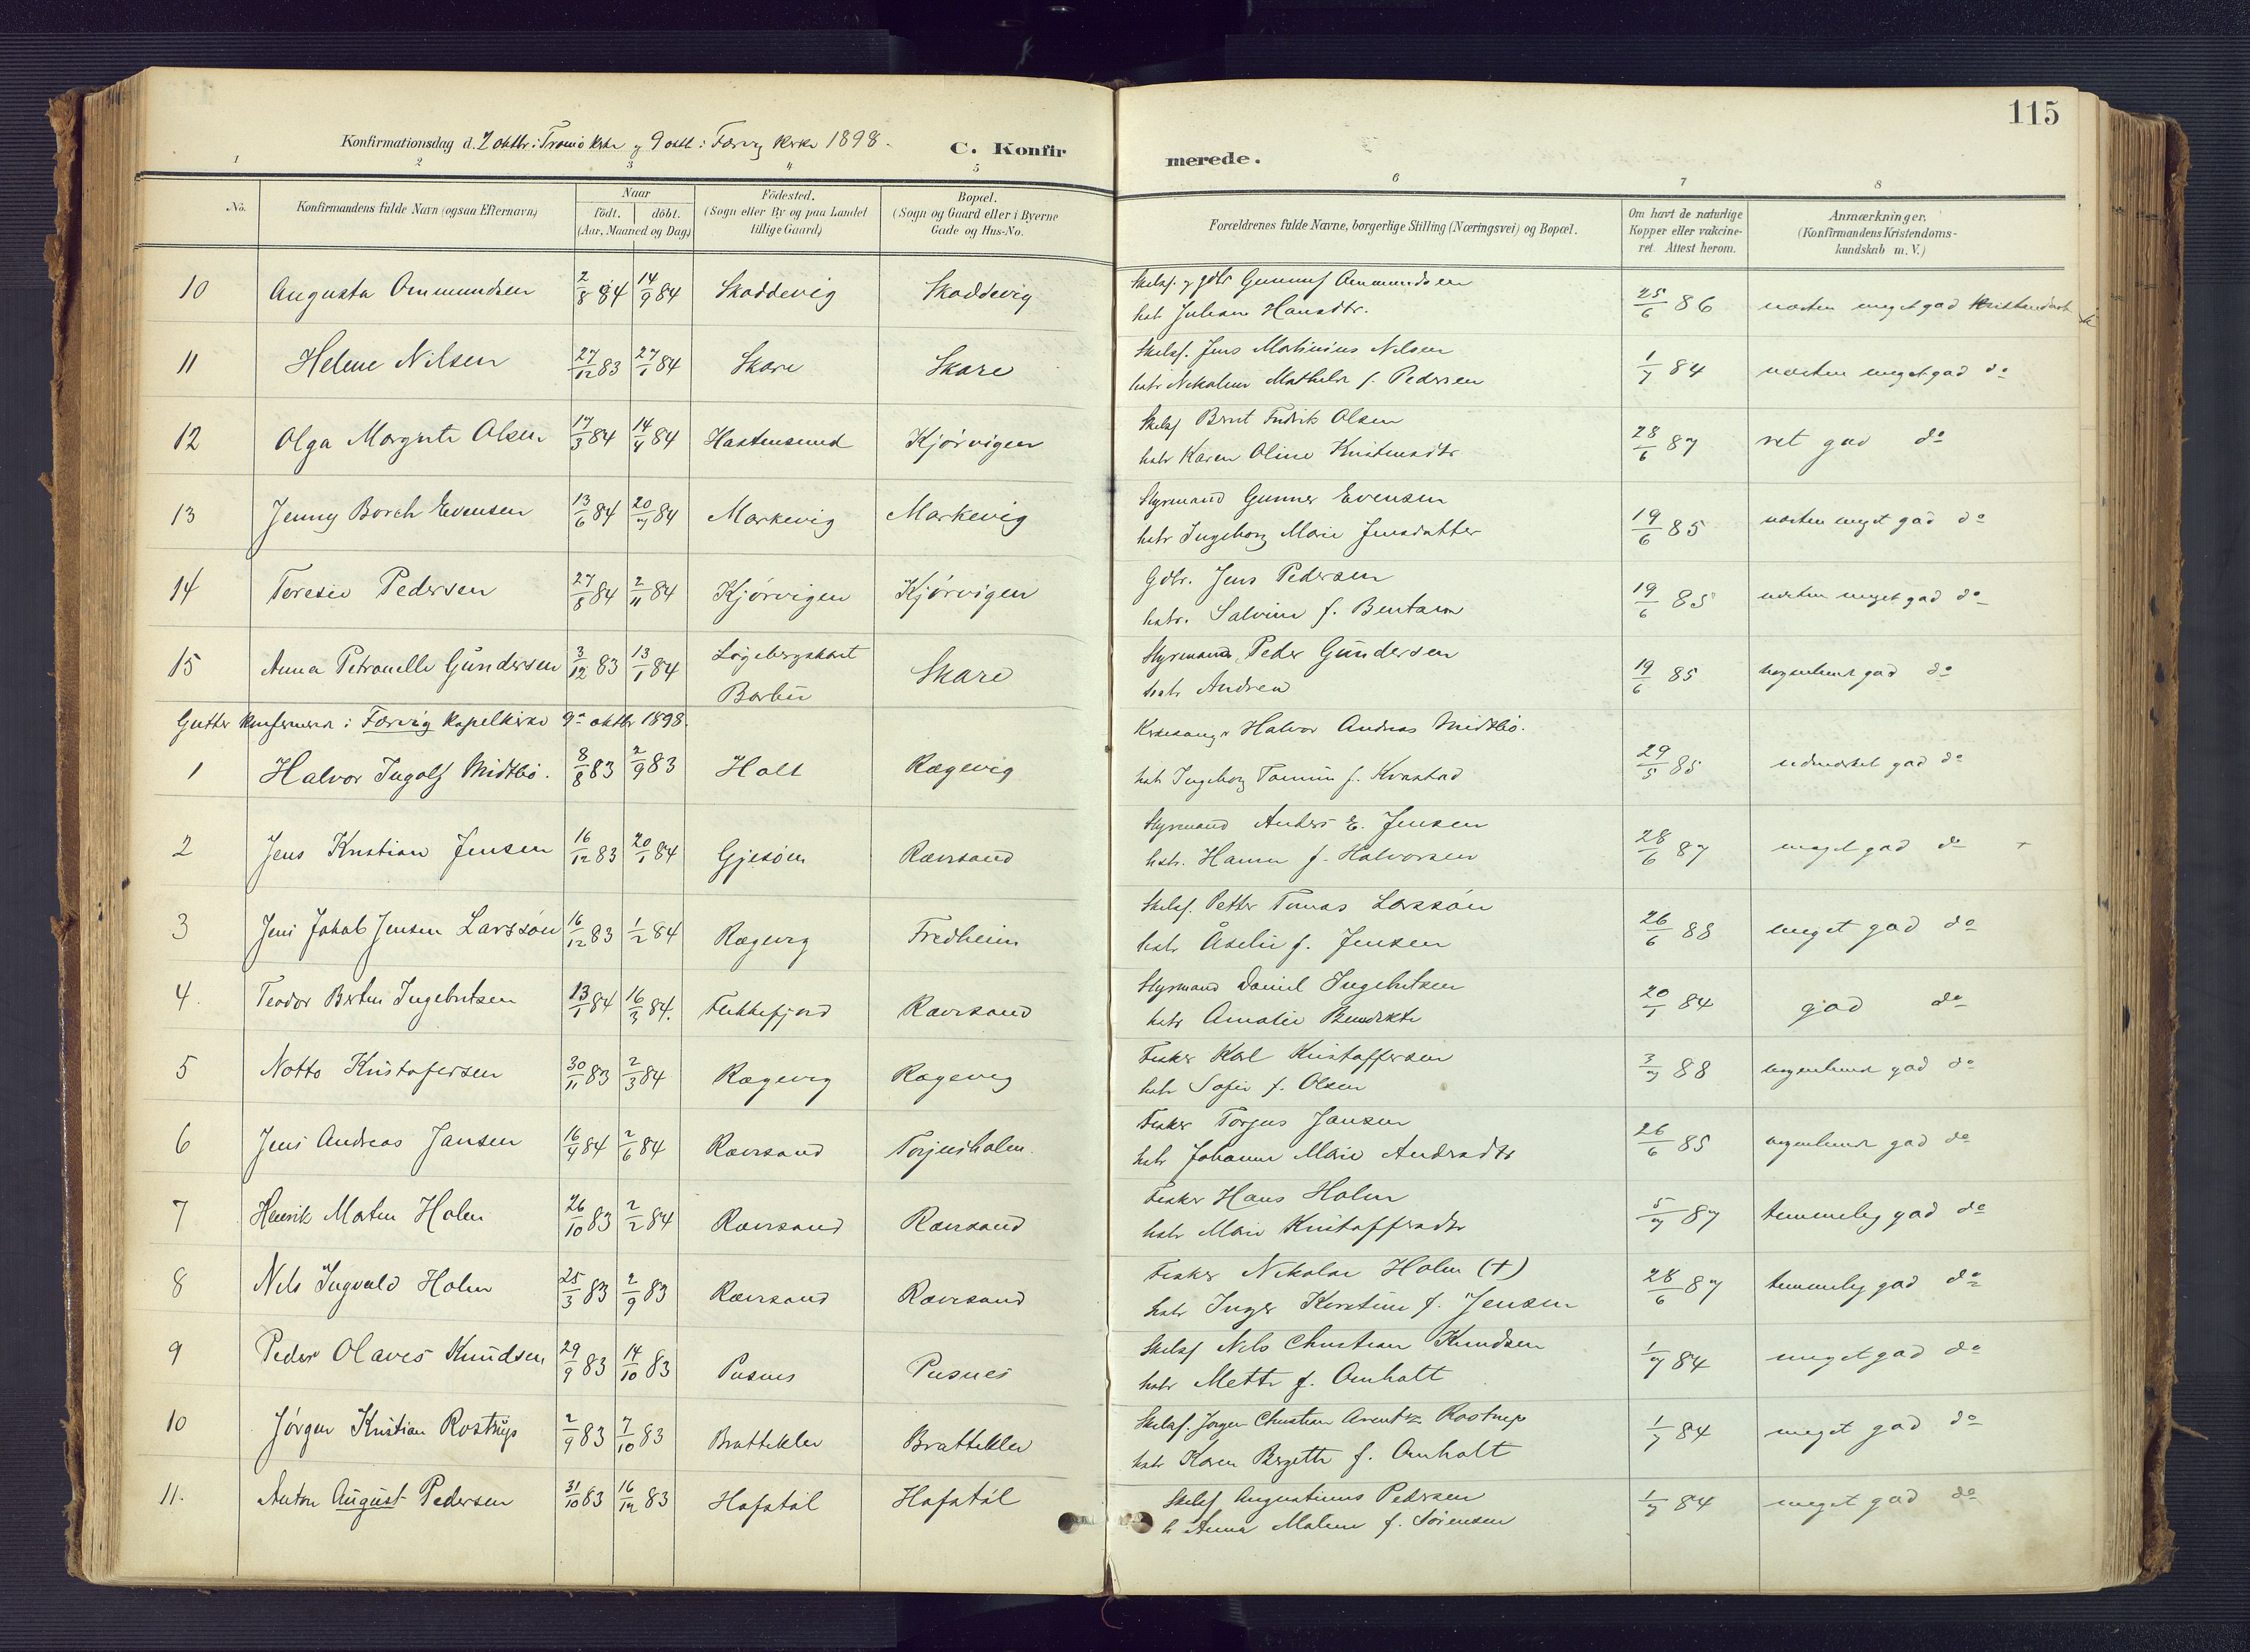 115
Konfirmationsdag d. 2 oktbr. i Tromø kirke og 9 oktb i Færvig kirke 1898.
C. Konfirmerede.
1 2 3 4 5 6 7 8
No.
Konfirmandens fulde Navn (ogsaa Efternavn)
Naar
födt. döbt.
(Aar, Maaned og Dag)
Födested.
(Sogn eller By og paa Landet
tillige Gaard)
Bopæl.
(Sogn og Gaard eller i Byerne
Gade og Hus-No.
Forældrenes fulde Navne, borgerlige Stilling (Næringsvei) og Bopæl.
Om havt de naturlige
Kopper eller vakcine-
ret Attest herom.
Anmærkninger.
(Konfirmandens Kristendoms-
kundskab m. V.)
10 Augusta Ommundsen 2/8 84 14/9 84 Skaddevig Skaddevig
Skibsf. og gdbr Gunnuf Ommundsen
hstr Juliane Hansdtr.
25/6 86 næsten meget god
11 Helene Nilsen 27/12 83 27/1 84 Skare Skare
Skibsf. Jens Martinius Nilsen
hstr Nikoline Mathilde f. Pedersen
1/7 84 næsten meget god do
12 Olga Margrete Olsen 17/3 84 14/4 84 Hastensund Kjørvigen
Skibsf Bernt Fredrik Olsen
hstr Karen Oline Kristensdtr
28/6 87 ret god do
13 Jenny Borch Evensen 13/6 84 20/7 84 Markevig Markevig
Styrmand Gunner Evensen
hstr Ingeborg Marie Jensdatter
19/6 85 næsten meget god do
14 Teresie Pedersen 27/8 84 2/11 84 Kjørvigen Kjørvigen
Gdbr. Jens Pedersen
hstr. Salvine f. Bentsen
19/6 85 næsten meget god do
15 Anna Petronelle Gundersen 3/12 83 13/1 84 Barbu Skare
Styrmand Peder Gundersen
hstr Andrea
19/6 85 nogenlunde god do
Gutter konfirmerede i Færvig kapelkirke 9de oktbr 1898.
1 Halvor Ingolf Midtbø. 8/8 83 2/9 83 Holt Rægevig
Kirkesanger Halvor Andreas Midtbø.
hstr Ingeborg Tomine f. Kvastad
29/5 85 udmærket god do
2 Jens Kristian Jensen 16/12 83 20/1 84 Gjesøen Rævesand
Styrmand Anders E. Jensen
hstr. Hanne f. Halvorsen
28/6 87 meget god do +
3 Jens Jakob Jensen Larssøn 16/12 83 1/2 84 Rægevig Fredheim
Skibsf. Petter Tomas Larssøn
hstr Åselie f. Jensen
26/6 88 meget god do
4. Teodor Bertin Ingebretsen 13/1 84 16/3 84. Flekkefjord Rævesand
Styrmand Daniel Ingebretsen
hstr Amalie Benedikte
20/1 84 god do
5 Notto Kristofersen 30/11 83 2/3 84 Rægevig Rægevig
Fisker Karl Kristoffersen
hstr Sofie f. Olsen
3/7 88 nogenlunde god do
6 Jens Andreas Jansen 16/4 84 2/6 84 Rævesand Torjusholm.
Fisker Torjus Jansen
hstr Johanne Marie Andrsdtr
26/6 85 nogenlunde god do
7 Henrik Martin Holm 26/10 83 2/2 84 Rævesand Rævesand
Fisker Hans Holm
hstr Marie Kristoffersdtr
5/7 87 temmelig god do
8 Nils Ingvald Holm 25/3 83 2/9 83 Rævesand Rævesand
Fisker Nikolai Holm (+)
hstr Inger Kirstine f. Jensen
28/6 87 temmelig god do
9 Peder Olaves Knudsen 29/9 83 14/10 83 Pusnes Pusnes
Skibsf Nils Christian Knudsen
hstr Mette f. Omholt
1/7 84 meget god do
10 Jørgen Kristian Rostrup 2/9 83 7/10 83 Brattekler Brattekler
Skibsf. Jørgen Christian Arentz Rostrup
hstr Karen Birgitte f. Omholt
1/7 84 meget god do
11. Anton August Pedersen 31/10 83 16/12 83 Hofstøl Hofstøl
Skibsf Augustinus Pedersen
h Anna Malene f. Sørensen
1/7 84 meget god do